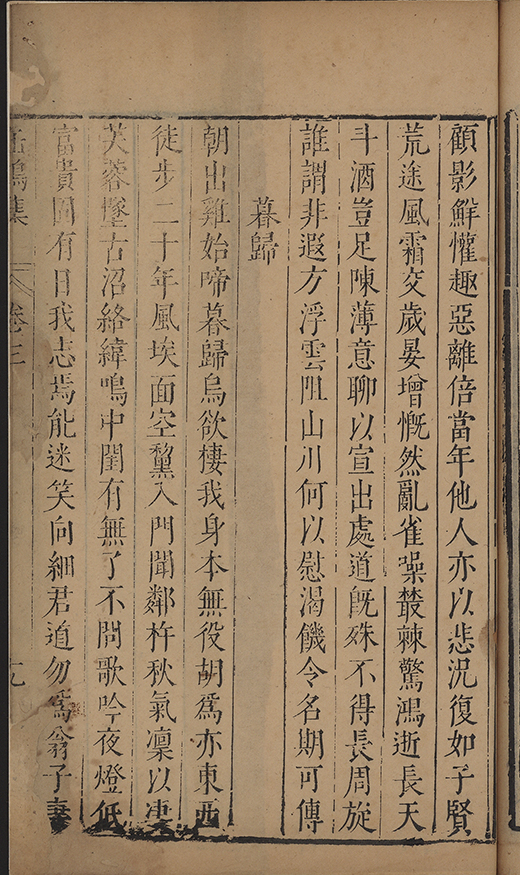 顧影鮮懽趣惡離倍當年他人亦以悲況復如子賢
荒途風霜交歲晏增慨然亂雀噪叢棘驚鴻逝長天
斗酒豈足陳薄意聊以宣出處道旣殊不得長周旋
誰謂非遐方浮雲阻山川何以慰渴饑令名期可傳
暮歸
朝出雞始啼暮歸烏欲棲我身本無役胡爲亦東西
徒步二十年風埃面空黧入門聞鄰杵秋氣凜以凄
芙蓉墮古沼絡緯鳴中閨有無了不問歌吟夜燈低
富貴固有日我志焉能迷笑向細君道勿爲翁子妻
缶鳴集 卷三 九